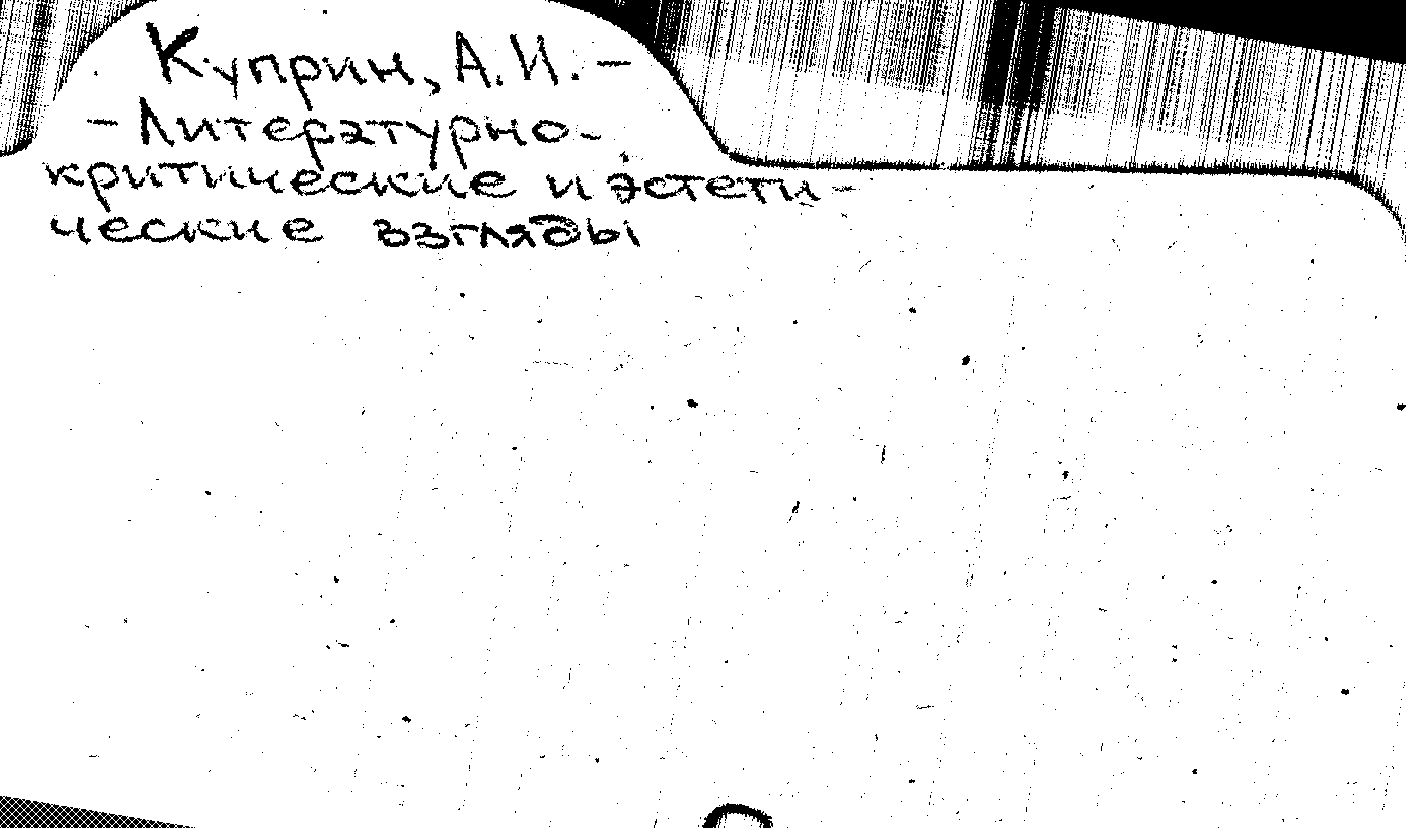 Куприн, А. И. –
– Литературно-
критические и эстети-
ческие взгляды